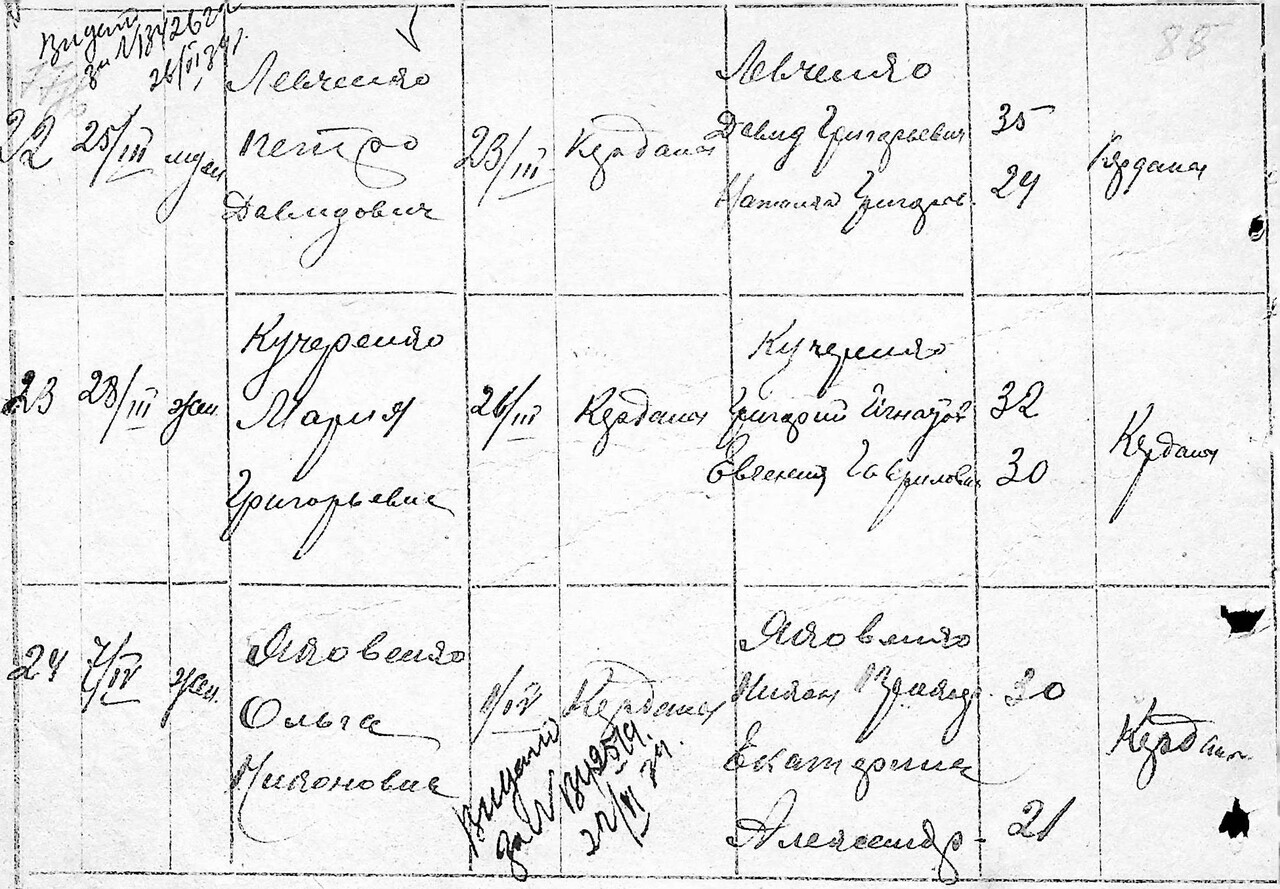 88
Видано
22 25/III Левченко Петро Давидович 23/III Кердани
Левченко
Давид Григорьевич 35
Наталия Григоров. 24
Кердани
23 28/III жен. Кучеренко Мария Григорьевна 26/III Кердани
Кучеренко
Григорий Игнатов 32
Евгения Гаврилов 30
Кердани
24 7/IV жен. Яковенко Ольга Никоновна 1/IV Кердани
Яковенко
Никон 30
Екатерина
Александр- 21
Кердани
Видано